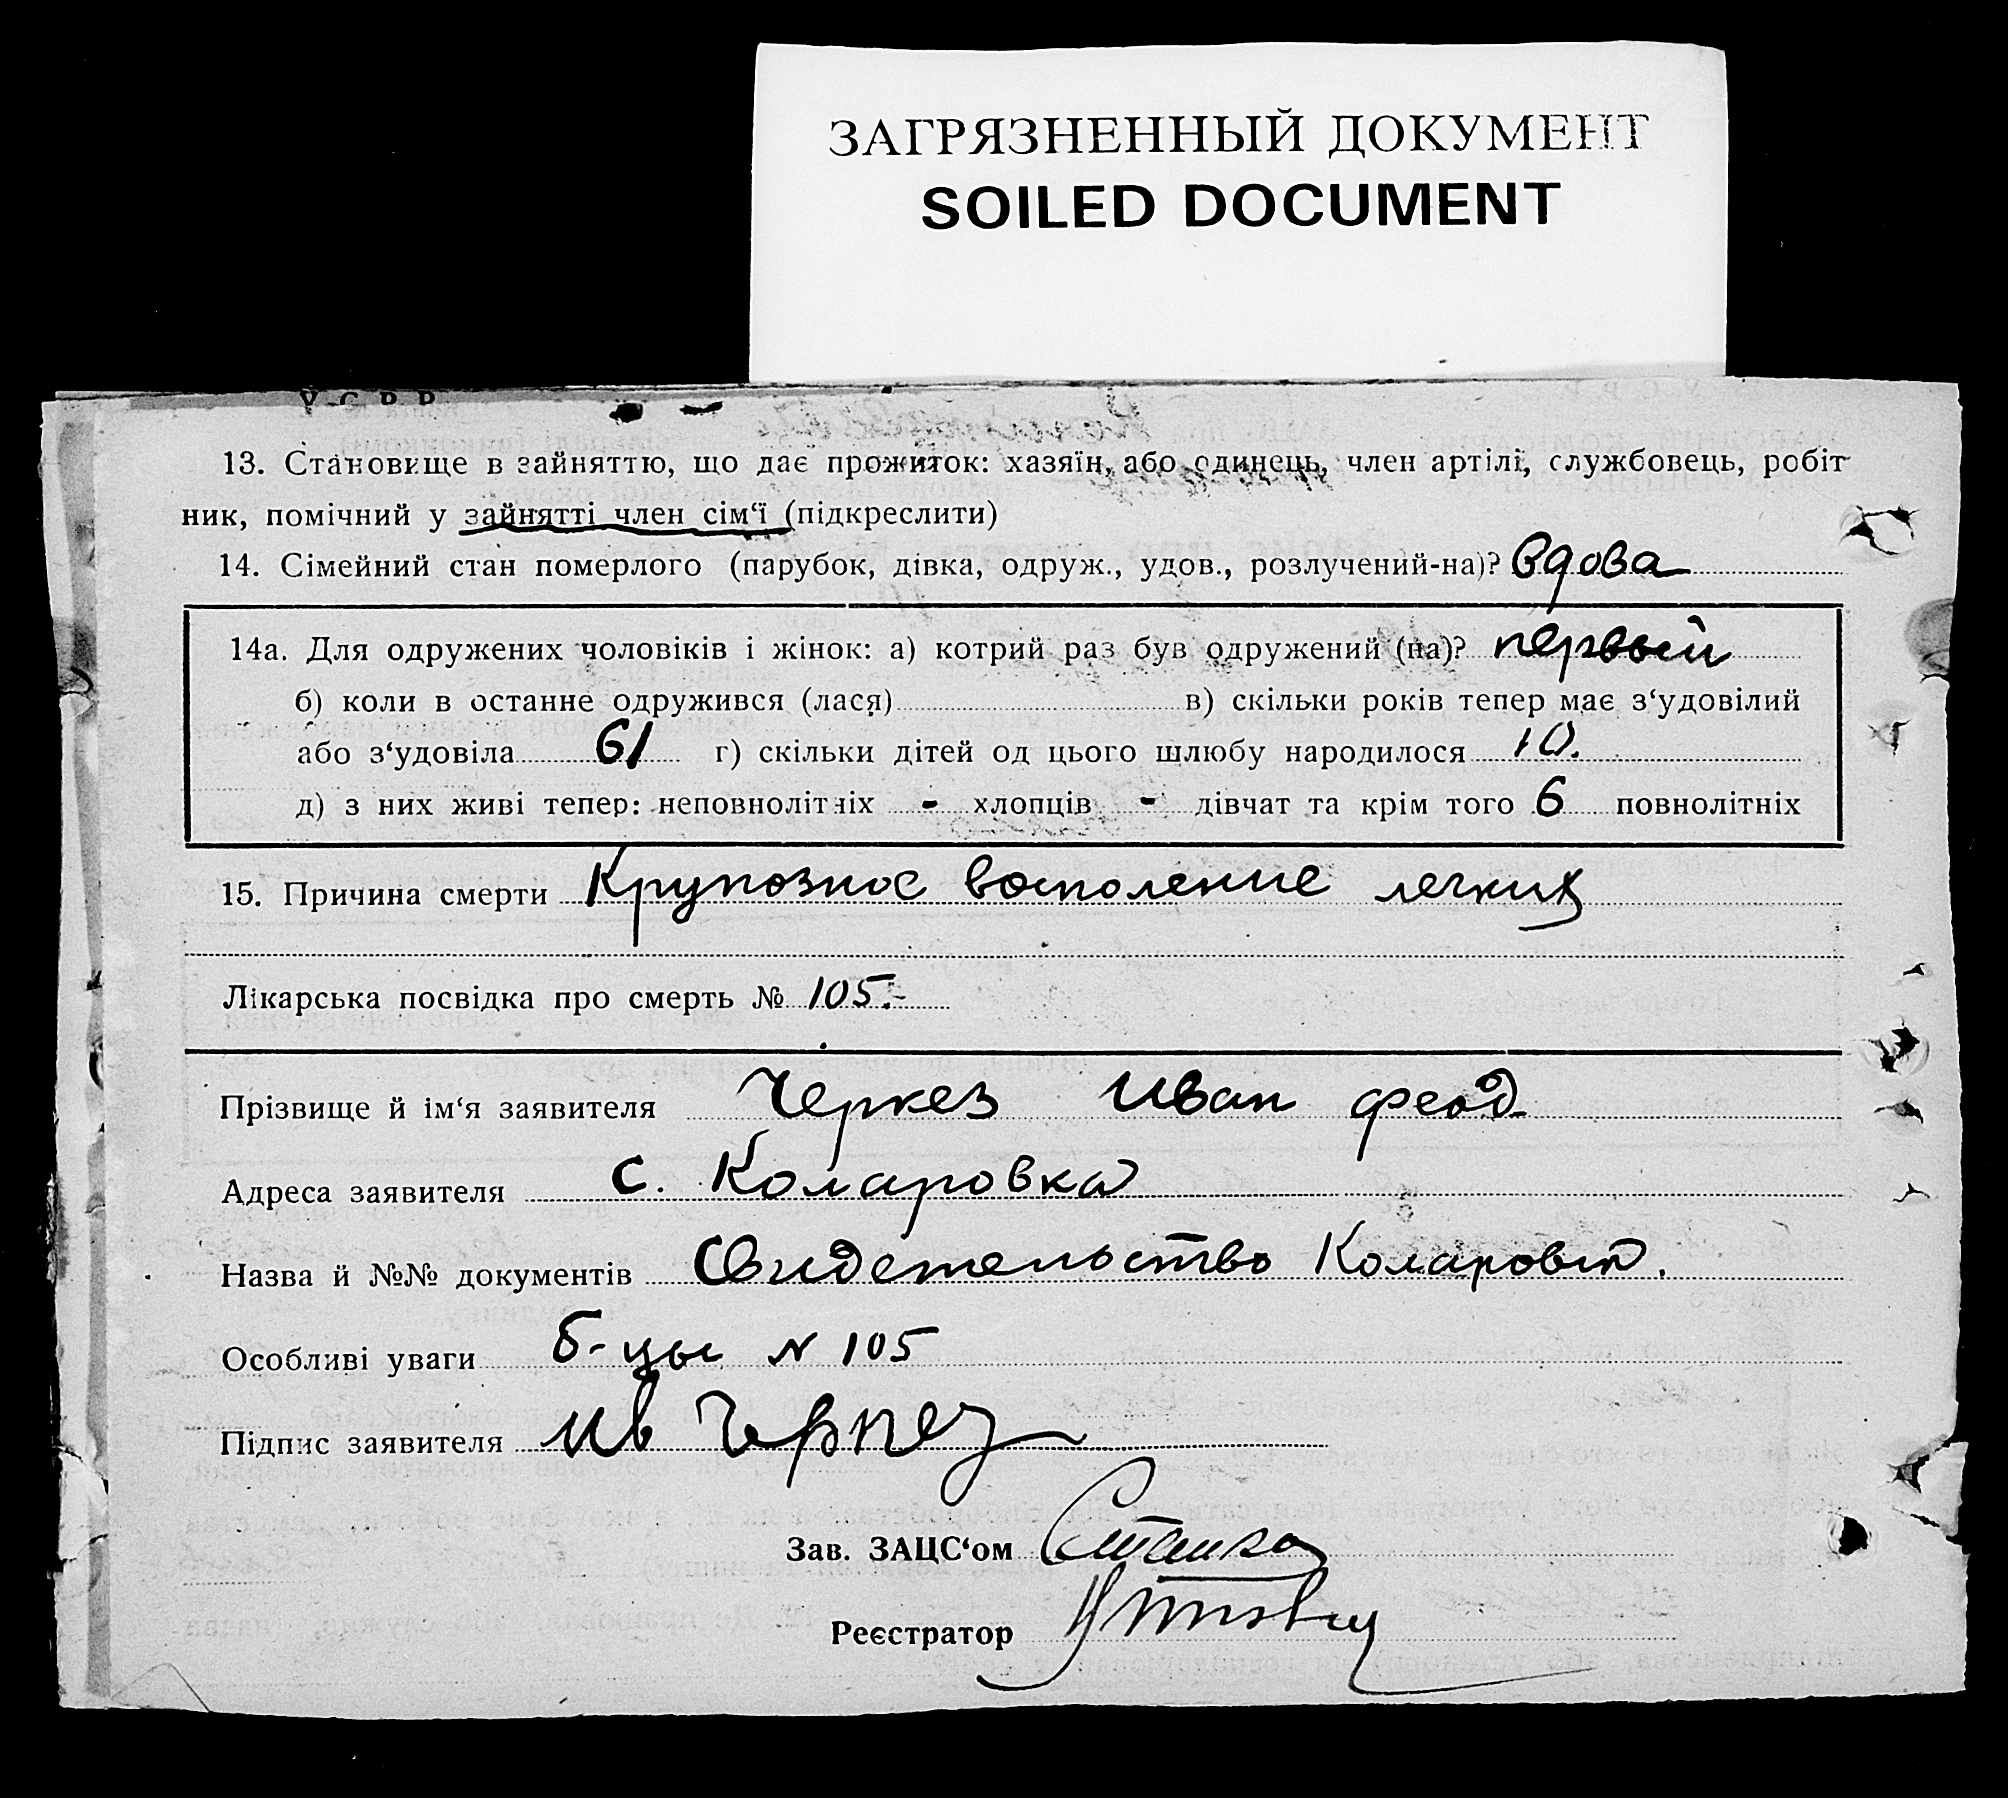 ЗАГРЯЗНЕННЫЙ ДОКУМЕНТ
SOILED DOCUMENT
У.С.Р.Р.
13. Становище в зайняттю, що дає прожиток: хазяїн, або одинець, член артілі, службовець, робіт
ник, помічний у зайнятті член сім‘ї (підкреслити)
14. Сімейний стан померлого (парубок, дівка, одруж., удов., розлучений-на)? вдова
14а. Для одружених чоловіків і жінок: а) котрий раз був одружений (на)? первый
б) коли в останне одружився (лася) в) скільки років тепер має з‘удовілий
або з‘удовіла 61 г) скільки дітей од цього шлюбу народилося 10.
д) з них живі тепер: неповнолітніх - хлопців - дівчат та крім того 6 повнолітніх
15. Причина смерти Крупозное восполение легких
Лікарська посвідка про смерть № 105.-
Прізвище й ім‘я заявителя Черкез Иван феод
Адреса заявителя с. Коларовка
Назва й №№ документів Свидетельство Коларовск.
Особливі уваги б-цы N 105
Підпис заявителя Ив Черкез
Зав. ЗАЦС‘ом
Реєстратор